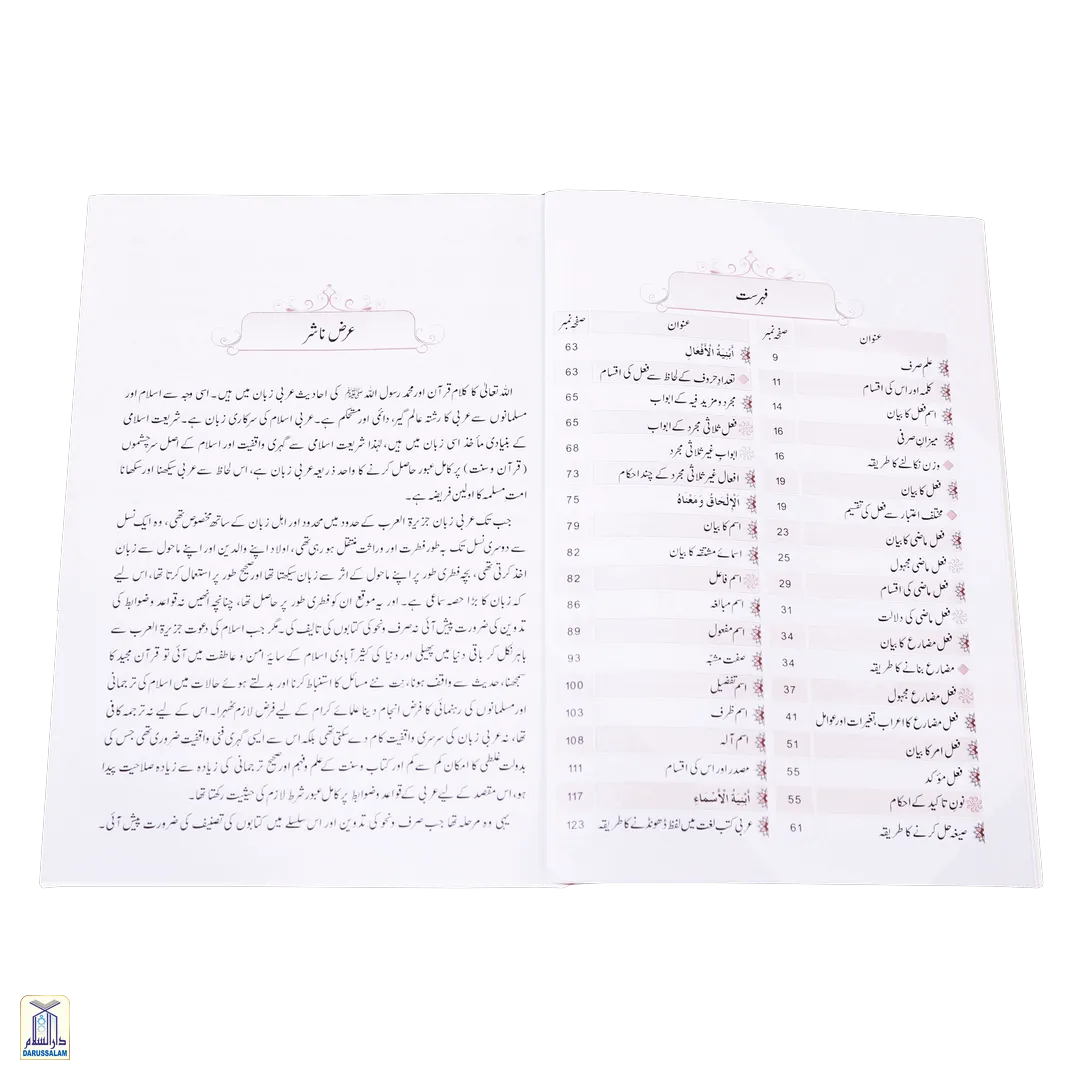 فہرست
عنوان صفحہ نمبر
علم صرف 9
کلمہ اور اس کی اقسام 11
اسم فعل کا بیان 14
میزان صرفی 16
وزن نکالنے کا طریقہ 16
فعل کا بیان 19
مختلف اعتبار سے فعل کی تقسیم 19
فعل ماضی کا بیان 23
فعل ماضی مجہول 25
فعل ماضی کی اقسام 29
فعل ماضی کی دلالت 31
فعل مضارع کا بیان 34
مضارع بنانے کا طریقہ 34
فعل مضارع مجہول 37
فعل مضارع کا اعراب، تغیرات اور عوامل 41
فعل امر کا بیان 51
فعل مؤکد 55
نون تاکید کے احکام 55
صیغہ حل کرنے کا طریقہ 61
عنوان صفحہ نمبر
أَبْنِيَةُ الْأَفْعَالِ 63
تعداد حروف کے لحاظ سے فعل کی اقسام 63
مجرد و مزید فیہ کے ابواب 65
فعل ثلاثی مجرد کے ابواب 65
ابواب غیر ثلاثی مجرد 68
افعال غیر ثلاثی مجرد کے چند احکام 73
اَلْإِلْحَاقُ وَمَعْنَاهُ 75
اسم کا بیان 79
اسمائے مشتقہ کا بیان 82
اسم فاعل 82
اسم مبالغہ 86
اسم مفعول 89
صفت مشبّہ 93
اسم تفضیل 100
اسم ظرف 103
اسم آلہ 108
مصدر اور اس کی اقسام 111
أَبْنِيَةُ الْأَسْمَاءِ 117
عربی کتب لغت میں لفظ ڈھونڈنے کا طریقہ 123
عرض ناشر
اللہ تعالیٰ کا کلام قرآن اور محمد رسول اللہ ﷺ کی احادیث عربی زبان میں ہیں۔ اسی وجہ سے اسلام اور
مسلمانوں سے عربی کا رشتہ عالم گیر، دائمی اور مستحکم ہے۔ عربی اسلام کی سرکاری زبان ہے۔ شریعت اسلامی
کے بنیادی مآخذ اسی زبان میں ہیں، لہٰذا شریعت اسلامی سے گہری واقفیت اور اسلام کے اصل سرچشموں
(قرآن و سنت) پر کامل عبور حاصل کرنے کا واحد ذریعہ عربی زبان ہے، اس لحاظ سے عربی سیکھنا اور سکھانا
امت مسلمہ کا اولین فریضہ ہے۔
جب تک عربی زبان جزیرۃ العرب کے حدود میں محدود اور اہل زبان کے ساتھ مخصوص تھی، وہ ایک نسل
سے دوسری نسل تک بہ طور فطرت اور وراثت منتقل ہو رہی تھی، اولاد اپنے والدین اور اپنے ماحول سے زبان
اخذ کرتی تھی، بچہ فطری طور پر اپنے ماحول کے اثر سے زبان سیکھتا تھا اور صحیح طور پر استعمال کرتا تھا، اس لیے
کہ زبان کا بڑا حصہ سماعی ہے۔ اور یہ موقع ان کو فطری طور پر حاصل تھا، چنانچہ انھیں نہ قواعد وضوابط کی
تدوین کی ضرورت پیش آئی نہ صرف ونحو کی کتابوں کی تالیف کی۔ مگر جب اسلام کی دعوت جزیرۃ العرب سے
باہر نکل کر باقی دنیا میں پھیلی اور دنیا کی کثیر آبادی اسلام کے سایۂ امن و عاطفت میں آئی تو قرآن مجید کا
سمجھنا، حدیث سے واقف ہونا، نت نئے مسائل کا استنباط کرنا اور بدلتے ہوئے حالات میں اسلام کی ترجمانی
اور مسلمانوں کی رہنمائی کا فرض انجام دینا علمائے کرام کے لیے فرض لازم ٹھہرا۔ اس کے لیے نہ ترجمہ کافی
تھا، نہ عربی زبان کی سرسری واقفیت کام دے سکتی تھی بلکہ اس سے ایسی گہری فنی واقفیت ضروری تھی جس کی
بدولت غلطی کا امکان کم سے کم اور کتاب وسنت کے علم وفہم اور صحیح ترجمانی کی زیادہ سے زیادہ صلاحیت پیدا
ہو، اس مقصد کے لیے عربی کے قواعد وضوابط پر کامل عبور شرط لازم کی حیثیت رکھتا تھا۔
یہی وہ مرحلہ تھا جب صرف ونحو کی تدوین اور اس سلسلے میں کتابوں کی تصنیف کی ضرورت پیش آئی۔
دارالسلام
DARUSSALAM